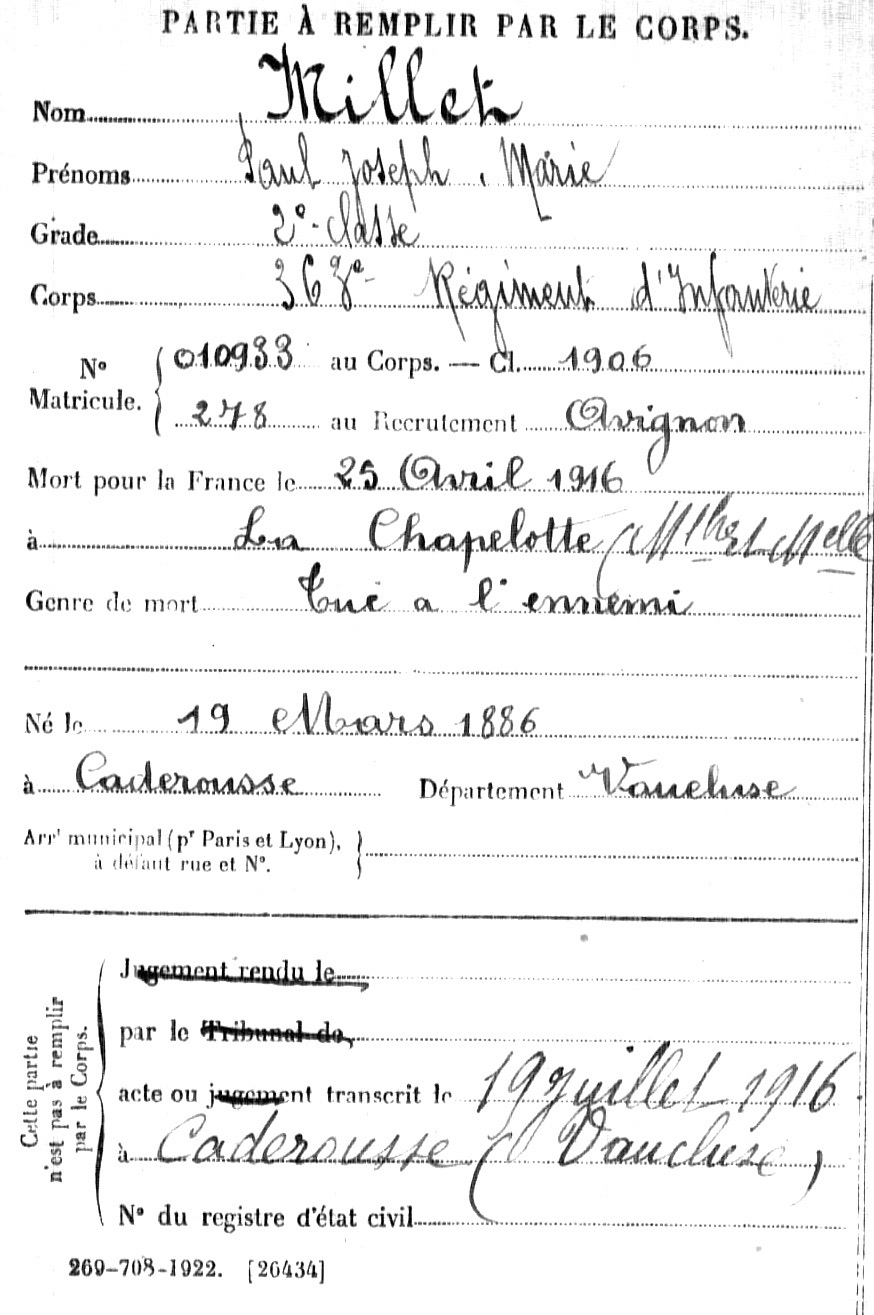 PARTIE À REMPLIR PAR LE CORPS.
Nom Millet
Prénoms Paul Joseph, Marie
Grade 2e classe
Corps 363e Régiment d'Infanterie
No Matricule. 010933 au Corps. — Cl. 1906
278 au Recrutement Avignon
Mort pour la France le 25 Avril 1916
à La Chapelotte (Mthe et Melle
Genre de mort Tué a l'ennemi
Né le 19 Mars 1886
à Caderousse Département Vaucluse
Arrt municipal (pr Paris et Lyon),
à défaut rue et No.
Cette partie n'est pas à remplir par le Corps.
Jugement rendu le
par le Tribunal de
acte ou jugement transcrit le 19 Juillet 1916
à Caderousse (Vaucluse)
No du registre d'état civil
269-708-1922. [26434]